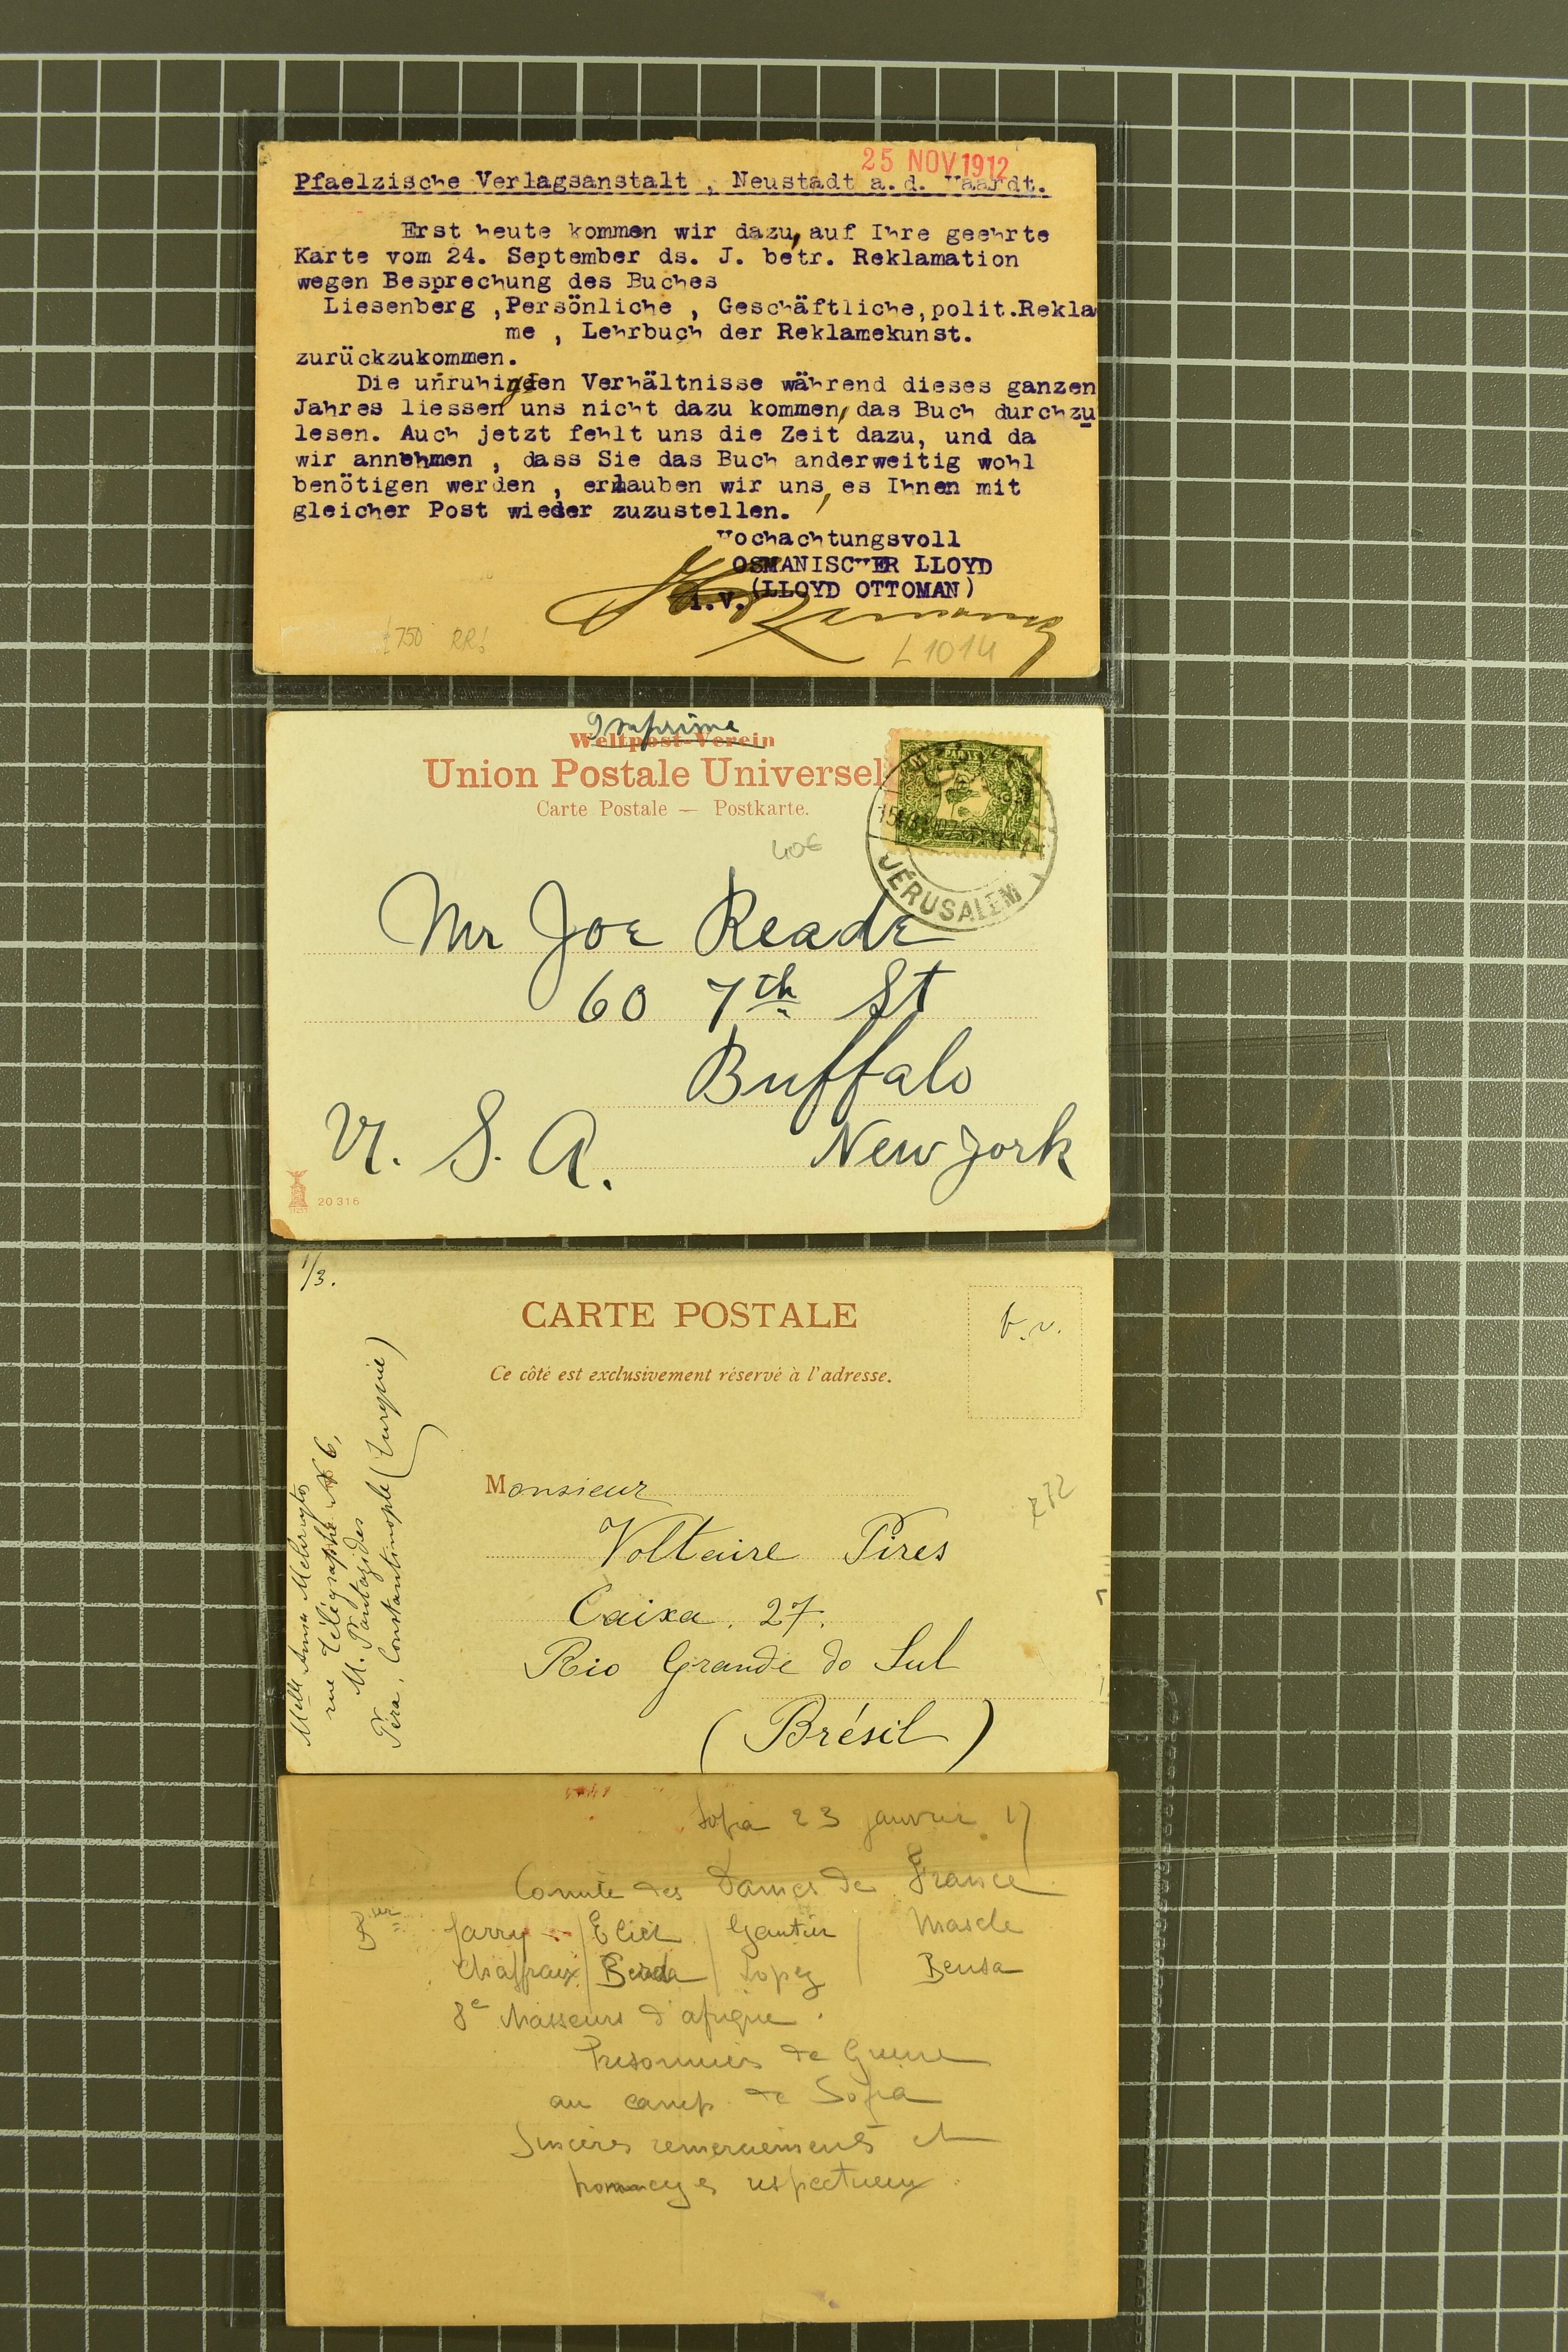 25 NOV 1912
Pfaelzische Verlagsanstalt , Neustadt a.d. Haardt.
Erst heute kommen wir dazu, auf Ihre geehrte
Karte vom 24. September ds. J. betr. Reklamation
wegen Besprechung des Buches
Liesenberg ,Persönliche , Geschäftliche,polit.Rekla
me , Lehrbuch der Reklamekunst.
zurückzukommen.
Die unruhigen Verhältnisse während dieses ganzen
Jahres liessen uns nicht dazu kommen, das Buch durchzu
lesen. Auch jetzt fehlt uns die Zeit dazu, und da
wir annehmen , dass Sie das Buch anderweitig wohl
benötigen werden , erlauben wir uns, es Ihnen mit
gleicher Post wieder zuzustellen.
Hochachtungsvoll
OSMANISCHER LLOYD
(LLOYD OTTOMAN)
i.V.
750 RR!
L1014
Imprimé
Weltpost-Verein
Union Postale Universel
Carte Postale — Postkarte.
40€
JÉRUSALEM
Mr Joe Reade
60 7th St
Buffalo
New York
U. S. A.
20316
1/3.
CARTE POSTALE
t.v.
Ce côté est exclusivement réservé à l'adresse.
Monsieur
Voltaire Pires
Caixa. 27.
Rio Grande do Sul
(Brésil)
Melle Anna
rue Télégraphe No 6,
M. Pantazides
Péra, Constantinople (Turquie)
Sofia 23 janvier 17
Comité des Dames de France
Jarry / Eliet / Gautier / Mascle
Chaffraix / / Lopez / Bensa
8e Chasseurs d'afrique.
Prisonniers de Guerre
au camp de Sofia
Sincères remerciements et
hommages respectueux.